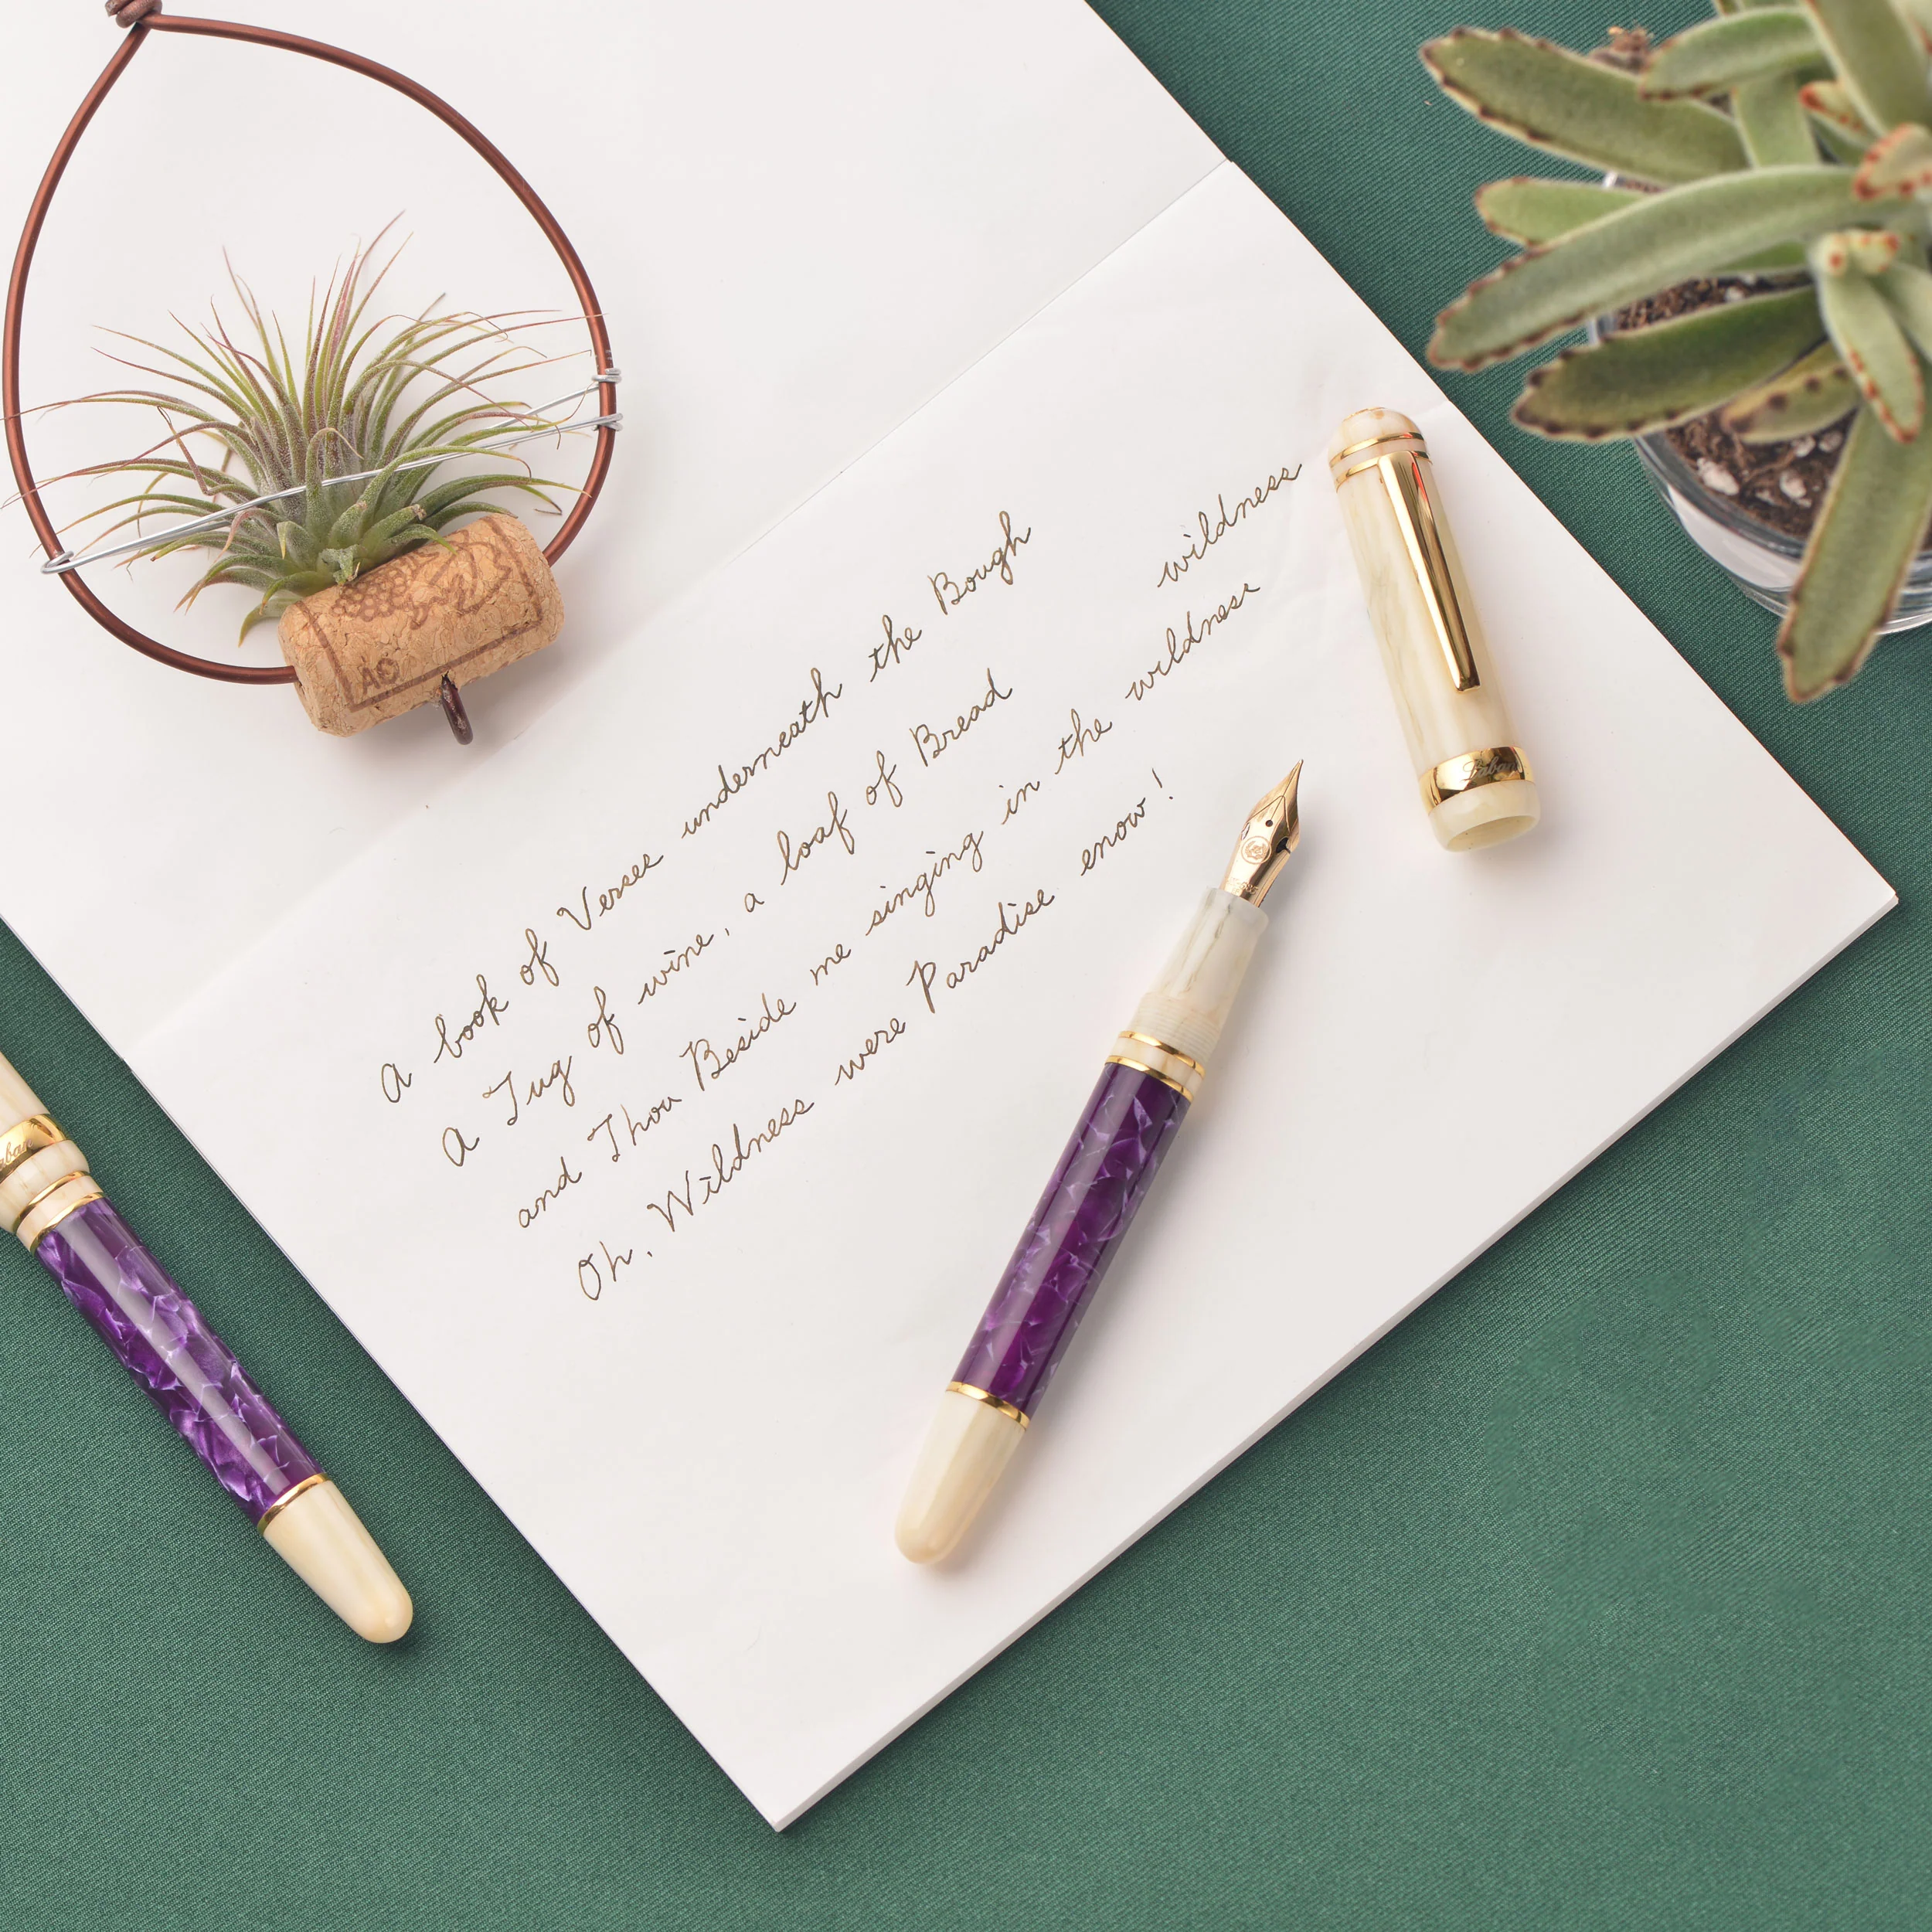 A book of Verses underneath the Bough
wildness
A Jug of wine, a loaf of Bread
and Thou Beside me singing in the wildness
Oh, Wildness were Paradise enow!
Laban
AO